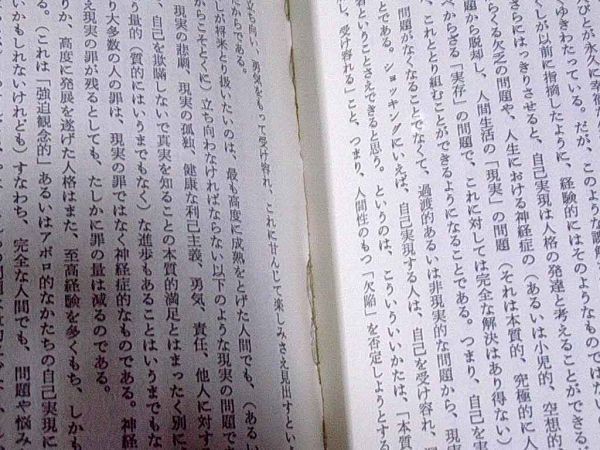 びとが永久に幸
ゆきわたっている。だが、このような誤解
くしが以前に指摘したように、経験的にはそのようなものではない
さらにはっきりさせると、自己実現は人格の発達と考えることができる
らくる欠乏の問題や、人生における神経症の(あるいは小児的、空想的
題から脱却し、人間生活の「現実」の問題(それは本質的、究極的に人
べからざる「実存」の問題で、これに対しては完全な解決はあり得ない)
、これととり組むことができるようになることである。つまり、自己を実
問題がなくなることでなくて、過渡的あるいは非現実的な問題から、現実
とである。ショッキングにいえば、自己実現する人は、自己を受け容れ、
者ということさえできると思う。というのは、こういういいかたは、「本質
し、受け容れる」こと、つまり、人間性のもつ「欠陥」を否定しようとする
立ち向い、勇気をもって受け容れ、これに甘んじて楽しみさえ見出すという
だからである。
しが将来とり扱いたいのは、最も高度に成熟をとげた人間でも、(あるい
からこそとくに)立ち向わなければならない以下のような現実の問題で
現実の悲劇、現実の孤独、健康な利己主義、勇気、責任、他人に対す
、自己を欺瞞しないで真実を知ることの本質的満足とはまったく別に
量的(質的にはいうまでもなく)な進歩もあることはいうまでもな
り大多数の人の罪は、現実の罪ではなく神経症的なものである。神経
え現実の罪が残るとしても、たしかに罪の量は減るのである。
り、高度に発展を遂げた人格はまた、至高経験を多くもち、しかも
。(これは「強迫観念的」あるいはアポロ的なかたちの自己実現に
いかもしれないけれども)すなわち、完全な人間でも、問題や悩み